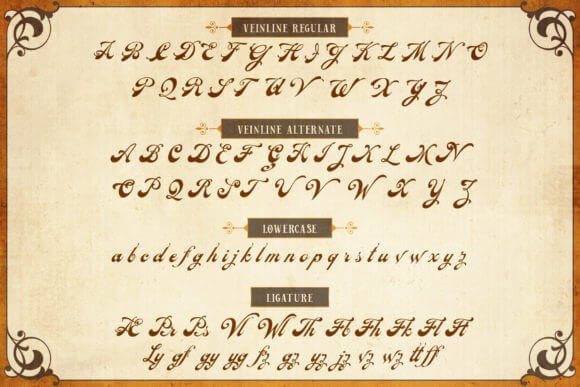 VEINLINE REGULAR
A B C D E F G H I J K L M N O
P Q R S T U V W X Y Z
VEINLINE ALTERNATE
A B C D E F G H I J K L M N
O P Q R S T U V W X Y Z
LOWERCASE
a b c d e f g h i j k l m n o p q r s t u v w x y z
LIGATURE
Vl Wl Th
Ly gf gy yg fz gz yz jz vz wz